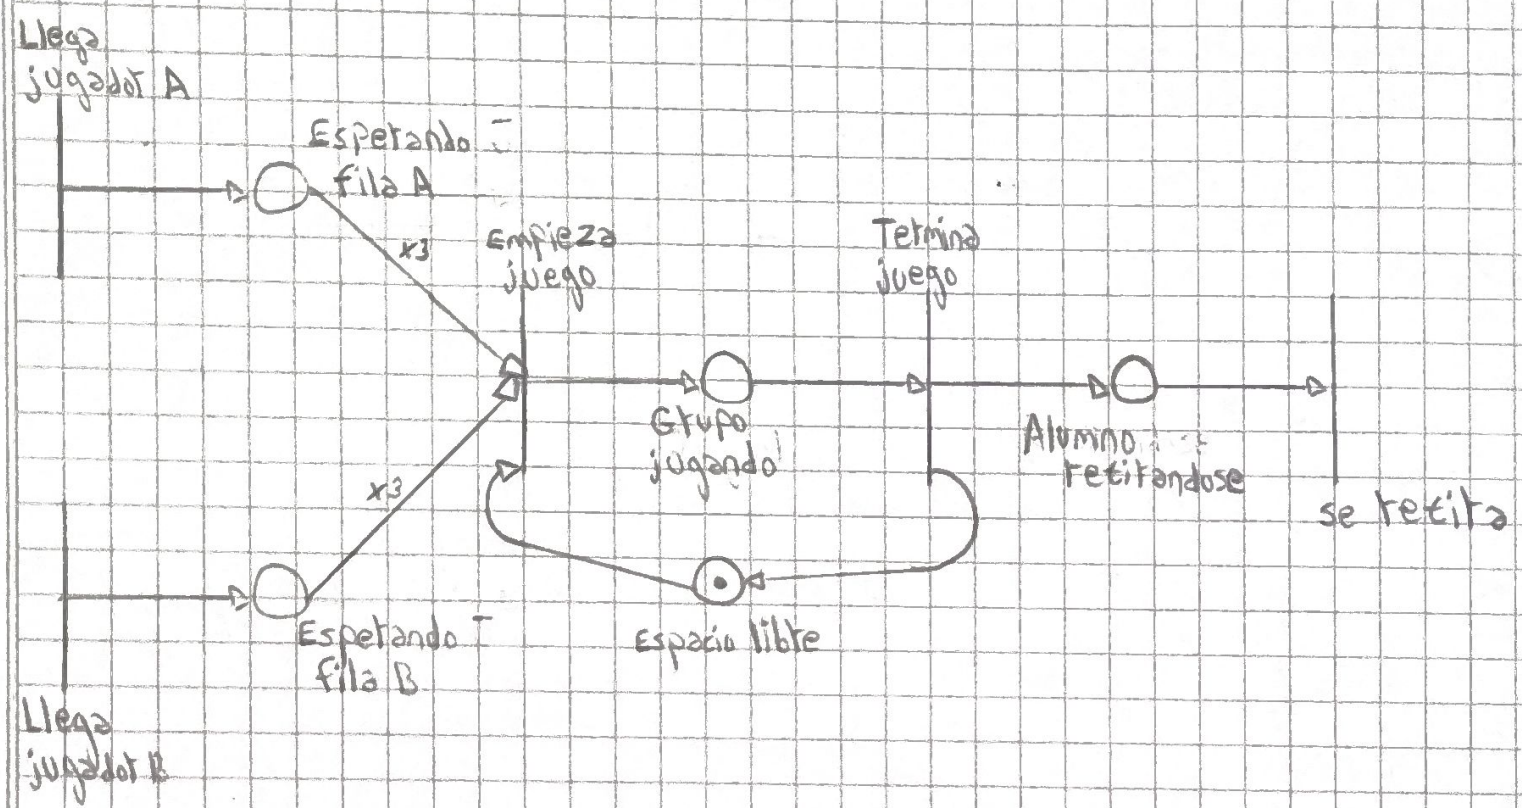 Llega
jugador A
Esperando
fila A
x3
Empieza
juego
Termina
juego
Grupo
jugando
Alumno
retirandose
se retira
x3
Espacio libre
Esperando
fila B
Llega
jugador B